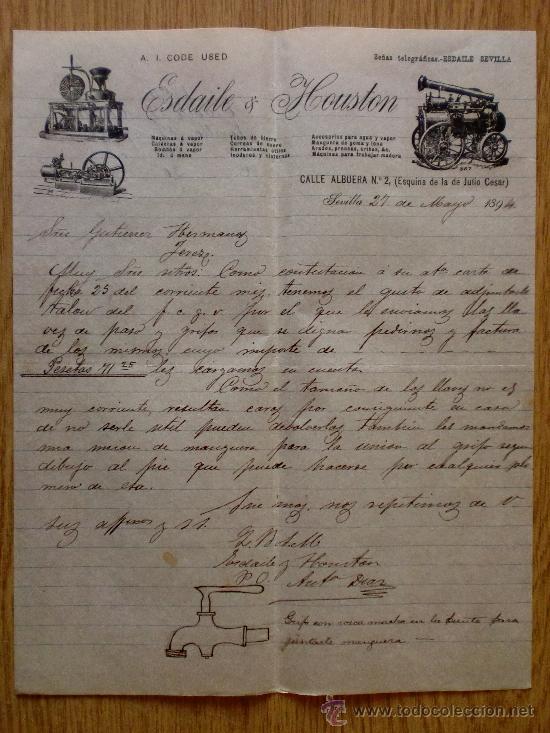 A. I. CODE USED
Señas telegráficas.-ESDAILE SEVILLA
Esdaile & Houston
Máquinas á vapor
Calderas á vapor
Bombas á vapor
Id. á mano
Tubos de hierro
Correas de cuero
Herramientas útiles
Inodoros y cisternas
Accesorios para agua y vapor
Manguera de goma y lona
Arados, prensas, cribas, &c.
Máquinas para trabajar madera
CALLE ALBUERA N.º 2, (Esquina de la de Julio Cesar)
Sevilla 27 de Mayo 1894
Sres Gutierrez Hermanos
Jerez
Muy Sres ntros: Como contestacion á su ata carta de
fecha 25 del corriente mes, tenemos el gusto de adjuntarle
talon del f. c. g. v por el que le enviamos las lla
ves de paso y grifos que se digna pedirnos y factura
de los mismos cuyo importe de
Pesetas 71 25 les cargamos en cuenta.
Como el tamaño de las llaves no es
muy corriente, resultan caras por consiguiente en caso
de no serle util pueden devolverlas tambien les mandamos
una union de manguera para la union al grifo segun
dibujo al pie que puede hacerse por cualquier
de esa.
Sin mas, nos repetimos de V
suz affmos y SS.
Esdaile y Houston
P. O. Anto Diaz
Grifo con rosca macho en la punta para
juntarle manguera
todocoleccion
http://www.todocoleccion.net